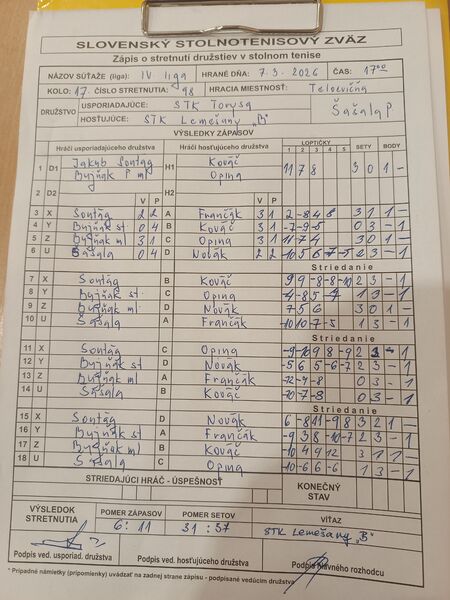 SLOVENSKÝ STOLNOTENISOVÝ ZVÄZ
Zápis o stretnutí družstiev v stolnom tenise
NÁZOV SÚŤAŽE (liga): IV liga HRANÉ DŇA: 7.3.2026 ČAS: 17°°
KOLO: 17. ČÍSLO STRETNUTIA: 98 HRACIA MIESTNOSŤ: Telocvičňa
DRUŽSTVO USPORIADAJÚCE: STK Torysa Šašala P.
HOSŤUJÚCE: STK Lemešany „B"
VÝSLEDKY ZÁPASOV
Hráči usporiadajúceho družstva Hráči hosťujúceho družstva LOPTIČKY SETY BODY
V P V P 1 2 3 4 5
1 D1 Jakub Sontág H1 Kováč 11 7 8 3 0 1 -
Bujňák P ml Opina
2 D2 H2
V P V P
3 X Sontág 2 2 A Frančák 3 1 2 -8 4 8 3 1 1 -
4 Y Bujňák st 0 4 B Kováč 3 1 -7 -9 -5 0 3 - 1
5 Z Bujňák ml 3 1 C Opina 3 1 11 7 4 3 0 1 -
6 U Šašala 0 4 D Novák 2 2 10 5 -6 -7 -5 2 3 - 1
Striedanie
7 X Sontág B Kováč 9 9 -8 -8 -10 2 3 - 1
8 Y Bujňák st C Opina -4 -8 5 -7 1 3 - 1
9 Z Bujňák ml D Novák 7 5 6 3 0 1 -
10 U Šašala A Frančák -10 10 -7 -5 1 3 - 1
Striedanie
11 X Sontág C Opina -9 -10 9 8 -9 2 3 - 1
12 Y Bujňák st D Novák -5 6 5 -6 -7 2 3 - 1
13 Z Bujňák ml A Frančák 0 3 - 1
14 U Šašala B Kováč -10 -7 -3 0 3 - 1
Striedanie
15 X Sontág D Novák 6 -8 11 -9 8 3 2 1 -
16 Y Bujňák st A Frančák -9 3 8 -10 -7 2 3 - 1
17 Z Bujňák ml B Kováč -10 4 9 12 3 1 1 -
18 U Šašala C Opina -10 6 -6 -6 1 3 - 1
STRIEDAJÚCI HRÁČ - ÚSPEŠNOSŤ KONEČNÝ STAV
VÝSLEDOK STRETNUTIA POMER ZÁPASOV POMER SETOV VÍŤAZ
6 : 11 31 : 37 STK Lemešany „B"
Podpis ved. usporiad. družstva Podpis ved. hosťujúceho družstva Podpis hlavného rozhodcu
* Prípadné námietky (pripomienky) uvádzať na zadnej strane zápisu - podpísané vedúcim družstva